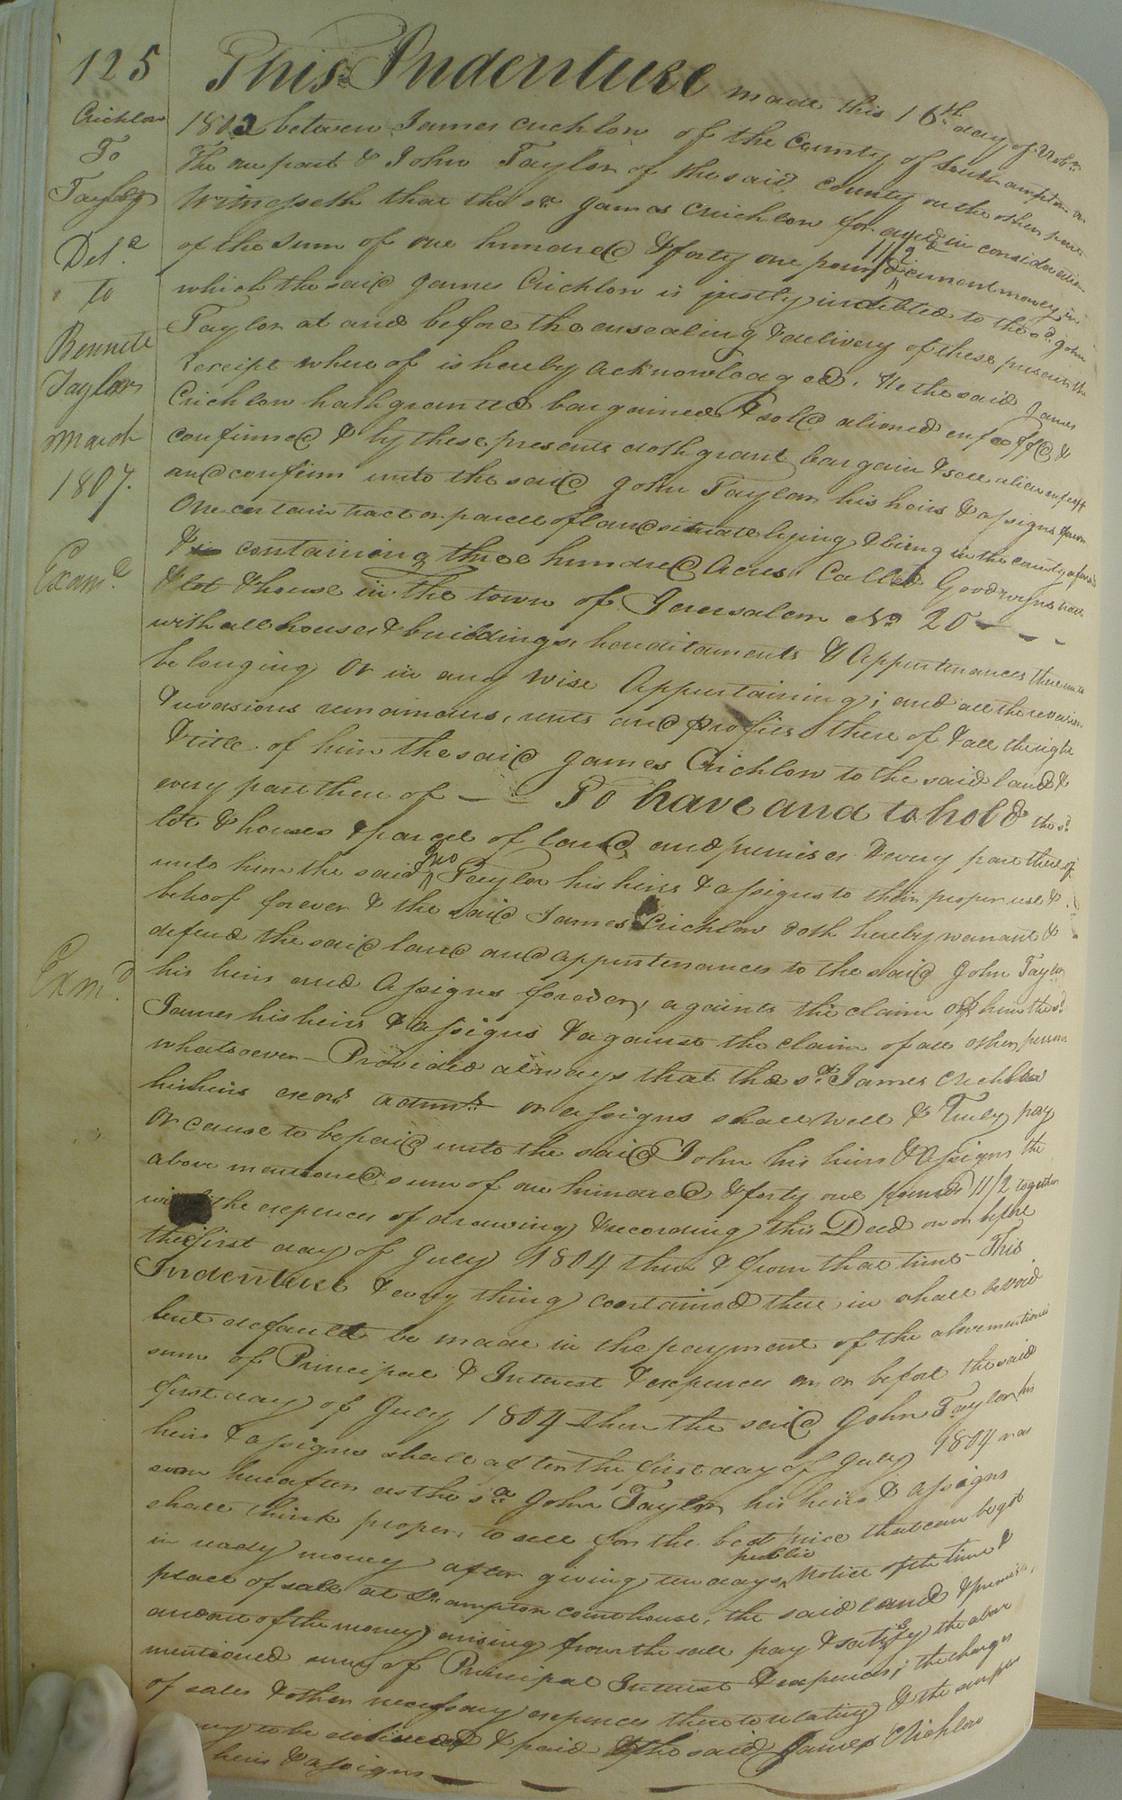 125
Crichlow
To
Taylor
Del.d
to
Bennett
Taylor
March
1807.
Exam.d
Exm.d
This Indenture made this 16th day of Nobr.
1803 between James Crichlow of the County of Southampton on
the one part & John Taylor of the said County on the other part
Witnesseth that the sd. James Crichlow for and in consideration
of the sum of one hundred & forty one pounds 11/2 current money in
which the said James Crichlow is justly indebted to the sd. John
Taylor at and before the ensealing & delivery of these presents the
receipt whereof is hereby acknowledged. He the said James
Crichlow hath granted bargained & sold aliened enfeoff'd &
confirmed & by these presents doth grant bargain & sell alien enfeoff
and confirm unto the said John Taylor his heirs & assigns forever
One certain tract or parcel of land situate lying & being in the county aforesd
& containing three hundred Acres Called Goodwyns
& lot & house in the town of Jerusalem No 20 - - -
with all houses & buildings, hereditaments & Appurtenances thereunto
belonging or in any wise Appurtaining; and all the reversion
& reversions remainders, rents and profits thereof & all the right
& title of him the said James Crichlow to the said land &
every part thereof — To have and to hold the sd.
lot & houses & parcel of land and premises & every part thereof
unto him the said Jno Taylor his heirs & assigns to their proper use &
behoof forever & the said James Crichlow doth hereby warrant &
defend the said land and appurtenances to the said John Taylor
his heirs and Assigns forever, againts the claim of him the sd.
James his heirs & assigns & against the claim of all other persons
whatsoever - Provided always that the sd. James Crichlow
his heirs exors. admrs. or assigns shall well & Truly pay
or cause to be paid unto the said John his heirs & Assigns the
above mentioned sum of one hundred & forty one pounds 11/2 together
with the expences of drawing & recording this Deed on or before
the first day of July 1804 then & from that time - This
Indenture & every thing contained there in shall be void
but default be made in the payment of the above mentioned
sum of Principal & Interest & expences on or before the said
first day of July 1804 then the said John Taylor his
heirs & assigns shall after the first day of July 1804 or as
soon hereafter as the sd. John Taylor his heirs & Assigns
shall think proper, to sell for the best price that can be got
in ready money after giving ten days public Notice of the time &
place of sale at So.ampton courthouse, the said land & premises,
and out of the money arising from the sale pay & satisfy the above
mentioned sum of Principal Interest & expences; the charges
of sales & other necessary expences thereto relating & the surplus
to be delivered & paid to the said James Crichlow
heirs & assigns — — —